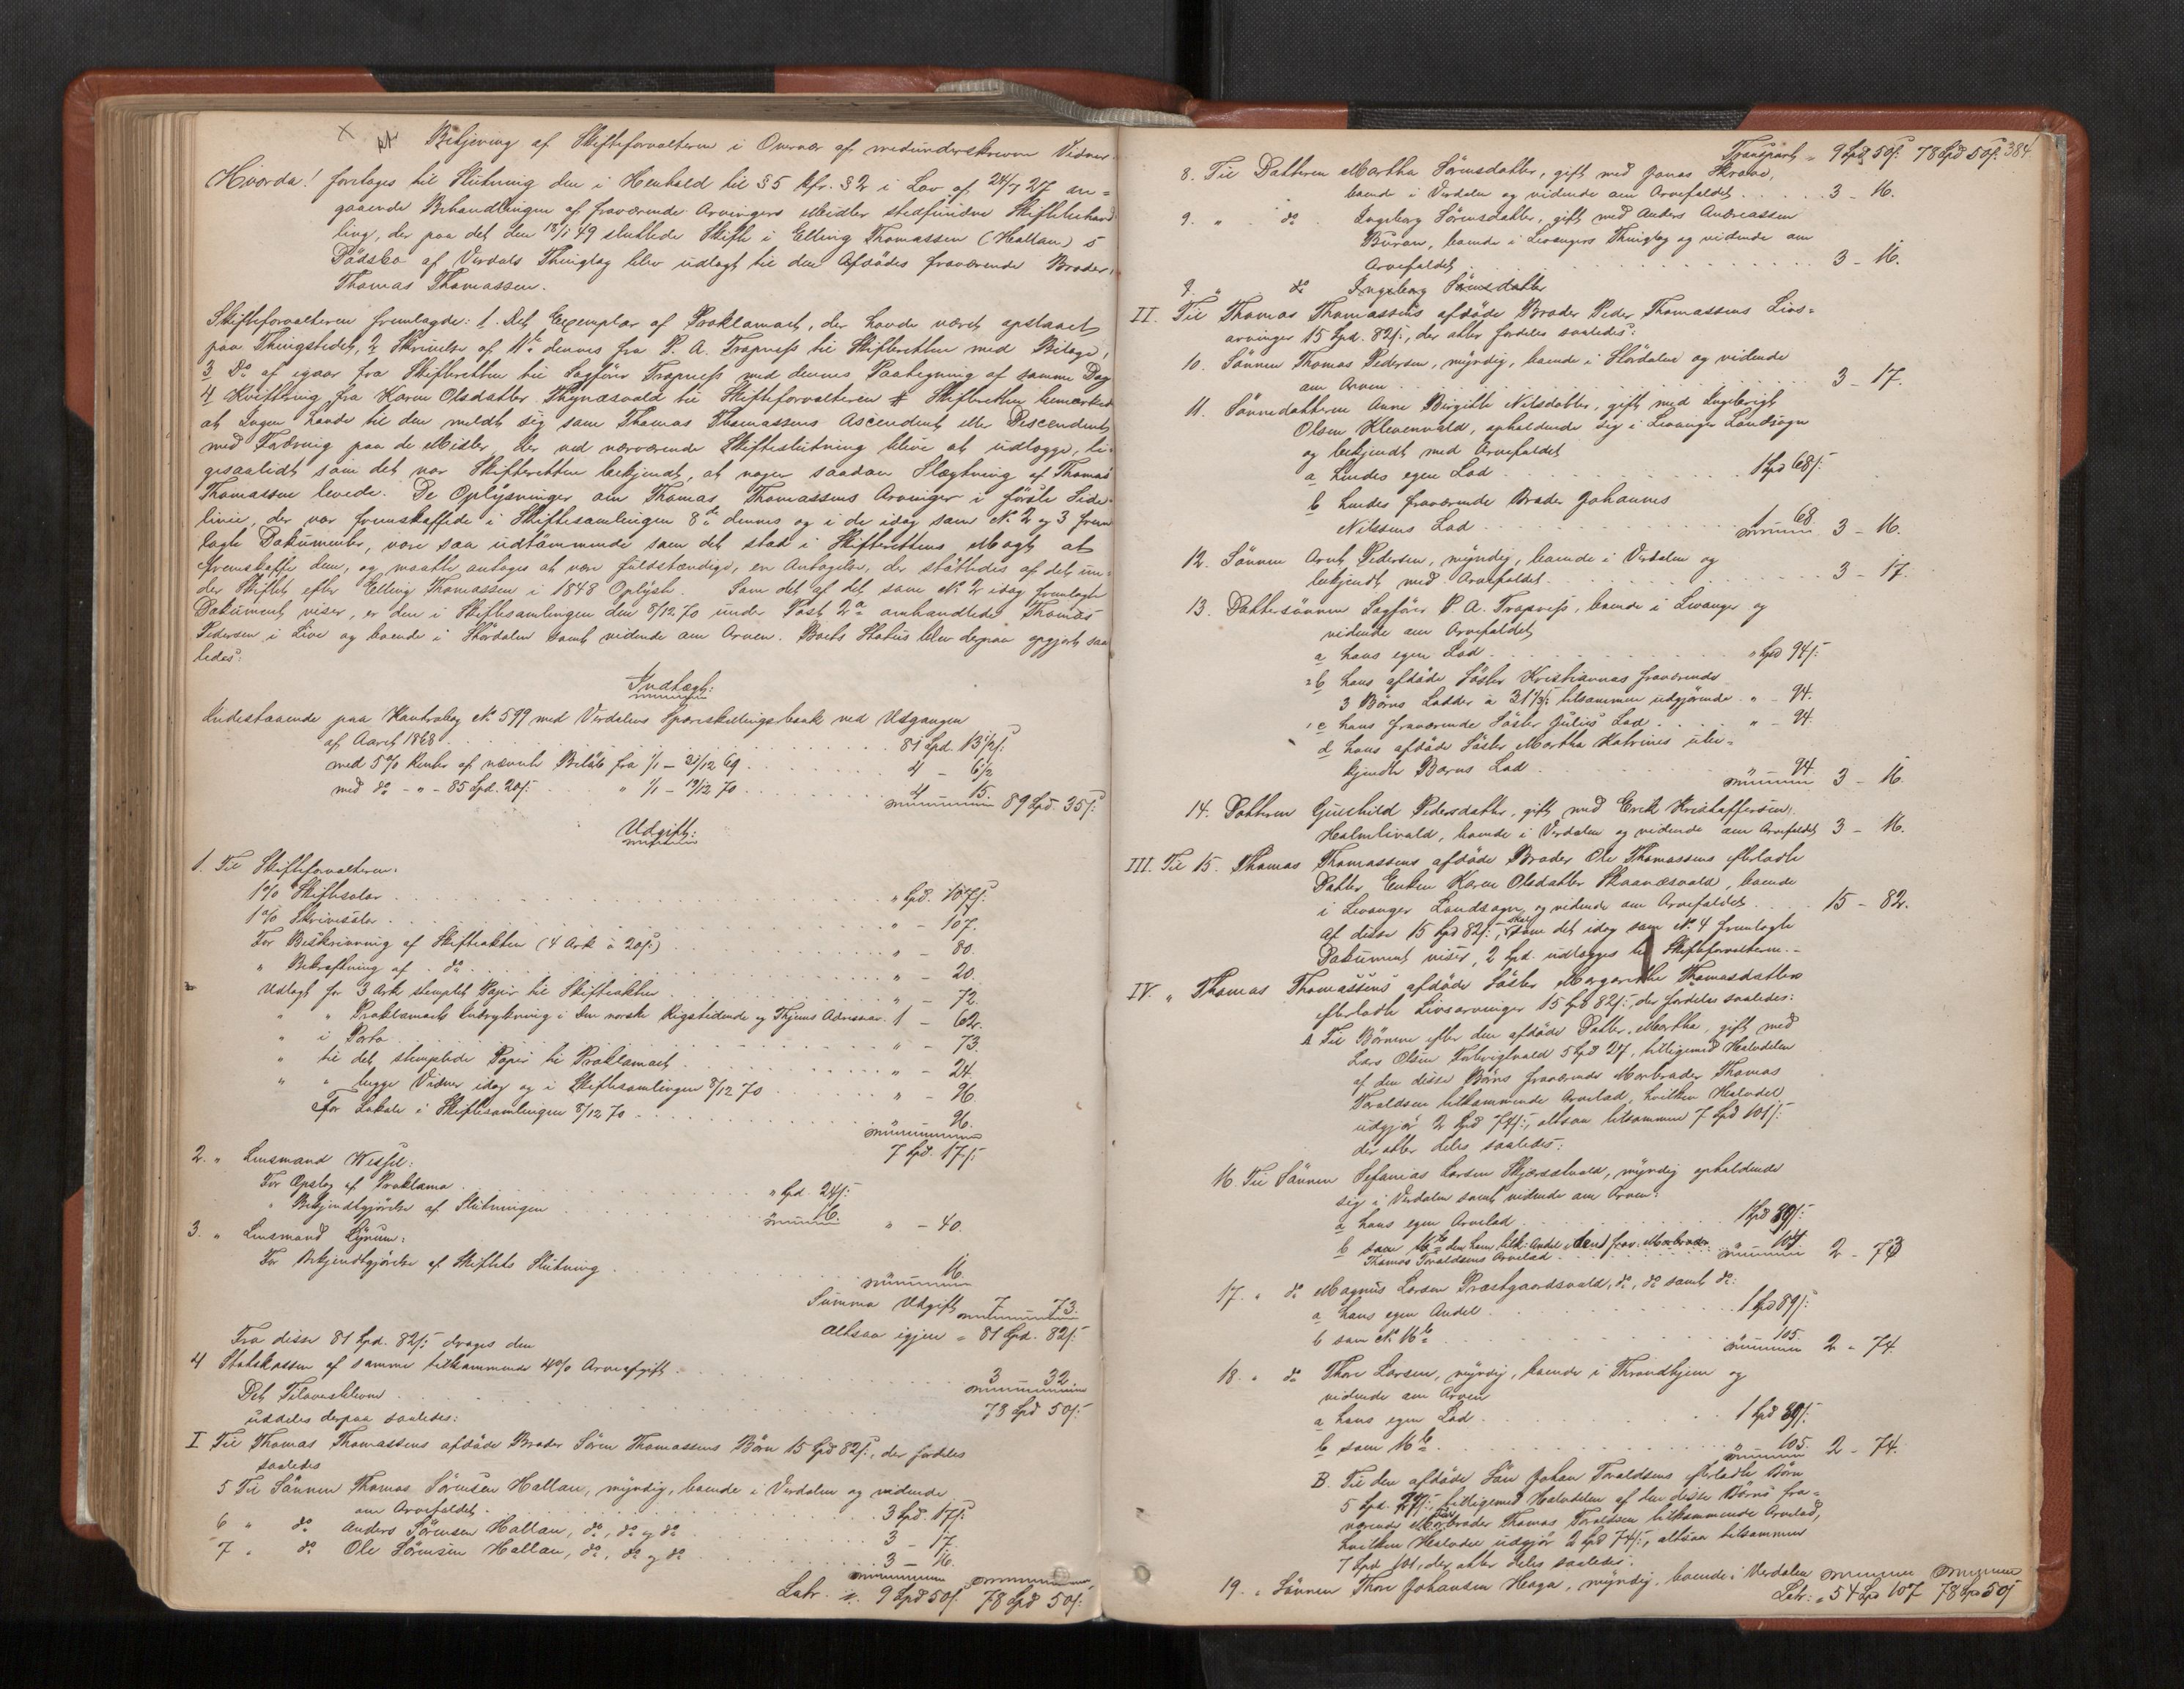 Betjening af Skifteforvalteren i Overvær af medunderskrevne Vidner.
Hvorda! foretages til Slutning den i Henhold til § 5 kfr. § 2 i Lov af 24/7 27 an=
gaaende Behandlingen af fraværende Arvingers Midler stedfundne Skiftebehand
ling, der paa det den 18/1 49 sluttede Skifte i Elling Thomassen (Hallan) s
Dødsbo af Verdals Thinglag blev udlagt til den Afdødes fraværende Broder,
Thomas Thomassen.
Skifteforvalteren fremlagde: 1. Det Exemplar af Proklamaet, der havde været opslaaet
paa Thingstedet, 2 Skrivelse af 11te dennes fra P. A. Trapness til Skifteretten med Bilage,
3 Do af igaar fra Skifteretten til Sagfører Trapness med dennes Paategning af samme Dag
4 Kvittering fra Karen Olsdatter til Skifteforvalteren Skifteretten bemærked
at Ingen havde til den meldt sig som Thomas Thomassens Ascendent eller Descendent
med Fordring paa de Midler, der ved nærværende Skifteslutning blive at udlægge, li-
gesaalidt som det var Skifteretten bekjendt, at nogen saadan Slægtning af Thomas
Thomassen levede. De Oplysninger om Thomas Thomassens Arvinger i første Side
linie, der var fremskaffede i Skiftesamlingen 8de dennes og i de idag som No 2 og 3 frem
lagte Dokumenter, vare saa udtømmende som det stod i Skifterettens Magt at
fremskaffe dem, og maatte antages at være fuldstændige, en Antagelse, der støttedes af det un-
der Skiftet efter Elling Thomassen i 1848 Oplyste. Som det af det som No 2 idag fremlagte
Dokument viser, er den i Skiftesamlingen den 8/12 70 under Post 2a omhandlede Thomas
Pedersen i Live og boende i Størdalen samt vidende om Arven. Boets Status blev derpaa opgjort saa
ledes:
Indtægt:
Indestaaende paa Kontrabog No 599 med Verdalens Spareskillingsbank ved Udgangen
af Aaret 1868 . . . 81 Spd. 13 1/2 s:
med 5% Renter af nævnte Beløb fra 1/1 - 31/12 69 . . . 4 - 6 1/2
med do - " - 85 Spd. 20 s: . . . " 1/1 - 19/12 70 . . . 4 15. 89 Spd. 35 s:
Udgift:
1. Til Skifteforvalteren:
1% Skiftesalær . . . " Spd. 107 s:
1% Skrivesalær . . . " - 107.
For Beskrivning af Skifteakten (4 Ark à 20 s:) . . . " - 80.
" Bekræftning af do . . . " - 20.
Udlagt for 3 Ark stemplet Papir til Skifteakten . . . " - 72.
" " Proklamaets Indrykning i den norske Rigstidende og Thjems Adresseav. 1 - 62.
" i Porto . . . " - 73.
" til det stemplede Papir til Proklamaet . . . " - 24.
" " begge Vidner idag og i Skiftesamlingen 8/12 70 . . . " - 96
For Lokale i Skiftesamlingen 8/12 70 . . . 96.
7 Spd. 17 s:
2. " Lensmand Wessel:
For Opslag af Proklama . . . " Spd. 24 s:
" Bekjendtgjørelse af Slutningen . . . 16. " - 40.
3. " Lensmand Lynum:
For Bekjendtgjørelse af Skiftets Slutning . . . 16.
Summa Udgift 7 73.
Altsaa igjen = 81 Spd. 82 s:
Fra disse 81 Spd. 82 s: drages den
4 Statskassen af samme tilkommende 4% Arveafgift . . . 3 - 32
Det Tiloversblevne . . . 78 Spd 50 s:
uddeles derpaa saaledes:
I Til Thomas Thomassens afdøde Broder Sören Thomassens Børn 15 Spd 82 s:, der fordeles
saaledes
5 Til Sønnen Thomas Sörensen Hallan, myndig, boende i Verdalen og vidende
om Arvefaldet . . . 3 Spd. 17 s:
6 " do Anders Sörensen Hallan, do, do og do . . . 3 - 17.
7 " do Ole Sörensen Hallan, do, do og do . . . 3 - 16.
Latr. 9 Spd 50 s: 78 Spd 50 s:
Transport = 9 Spd 50 s: 78 Spd 50 s: 384.
8. Til Datteren Martha Sörensdatter, gift med Jonas Skrove,
boende i Verdalen og vidende om Arvefaldet . . . 3 - 16.
9. " do Ingeborg Sörensdatter, gift med Anders Andreassen
Buran, boende i Levangers Thinglag og vidende om
Arvefaldet . . . 3 - 16.
9. " do Ingeborg Sörensdatter
II. Til Thomas Thomassens afdøde Broder Peder Thomassens Livs=
arvinger 15 Spd. 82 s:, der atter fordeles saaledes:
10. Sønnen Thomas Pedersen, myndig, boende i Stördalen og vidende
om Arven . . . 3 - 17.
11. Sønnedatteren Anne Birgitte Nilsdatter, gift med Ingebrigt
Olsen Klevenvald, opholdende sig i Levanger Landsogn
og bekjendt med Arvefaldet
a hendes egen Lod . . . 1 Spd 68 s:
b hendes fraværende Broder Johannes
Nilssens Lod . . . 1 68 3 - 16.
12. Sønnen Arnt Pedersen, myndig, boende i Verdalen og
bekjendt med Arvefaldet . . . 3 - 17.
13. Dattersønnen Sagfører P. A. Trapness, boende i Levanger og
vidende om Arvefaldet
a hans egen Lod . . . " Spd 94 s:
b hans afdøde Søster Kristiannas fraværende
3 Børns Lodder à 31 1/3 s: tilsammen udgjørende " - 94.
c hans fraværende Søster Julies Lod . . . " - 94.
d hans afdøde Søster Martha Katrines ube=
kjendte Barns Lod . . . 94. 3 - 16.
14. Datteren Gunhild Pedersdatter, gift med Erik Kristoffersen
Holmlivald, boende i Verdalen og vidende om Arvefaldet 3 - 16.
III. Til 15. Thomas Thomassens afdøde Broder Ole Thomassens efterladte
Datter Enken Karen Olsdatter, boende
i Levanger Landsogn og vidende om Arvefaldet . . . 15 - 82.
Af disse 15 Spd 82 s:, skal som det idag som No 4 fremlagte
Dokument viser, 2 Spd. udlægges til Skifteforvalteren.-
IV. " Thomas Thomassens afdøde Søster Margrethe Thomasdatters
efterladte Livsarvinger 15 Spd 82 s:, der fordeles saaledes:
A Til Børnene efter den afdøde Datter Martha, gift med
Lars Olsen 5 Spd 27, tilligemed Halvdelen
af den disse Børns fraværende Morbroder Thomas
Toraldsen tilkommende Arvelod, hvilken Halvdel
udgjør 2 Spd 74 s:, altsaa tilsammen 7 Spd 101 s:
der atter deles saaledes:
16. Til Sønnen Sefanias Larsen, myndig opholdende
sig i Verdalen samt vidende om Arven:
a hans egen Arvelod . . . 1 Spd 89 s:
b som 16 b den ham tilk. Andel i den frav. Morbroder
Thomas Toraldsens Arvelod . . . 104. 2 - 73
17. " do Magnus Larsen Præstgaardsvald, do, do samt do:
a hans egen Andel . . . 1 Spd 89 s:
b som No 16 b . . . 105. 2 - 74.
18. " do Thore Larsen, myndig, boende i Throndhjem og
vidende om Arven
a hans egen Lod . . . 1 Spd 89 s:
b som 16 b . . . 105. 2 - 74.
B. Til den afdøde Søn Johan Toraldsens efterladte Børn
5 Spd. 27 s:, tilligemed Halvdelen af den disse Børns fra=
værende Farbroder Thomas Toraldsen tilkommende Arvelod,
hvilken Halvdel udgjør 2 Spd 74 s:, altsaa tilsammen
7 Spd 101, der atter deles saaledes:
19. " Sønnen Thore Johansen Haga, myndig, boende i Verdalen
Latr: = 54 Spd 107 78 Spd 50 s